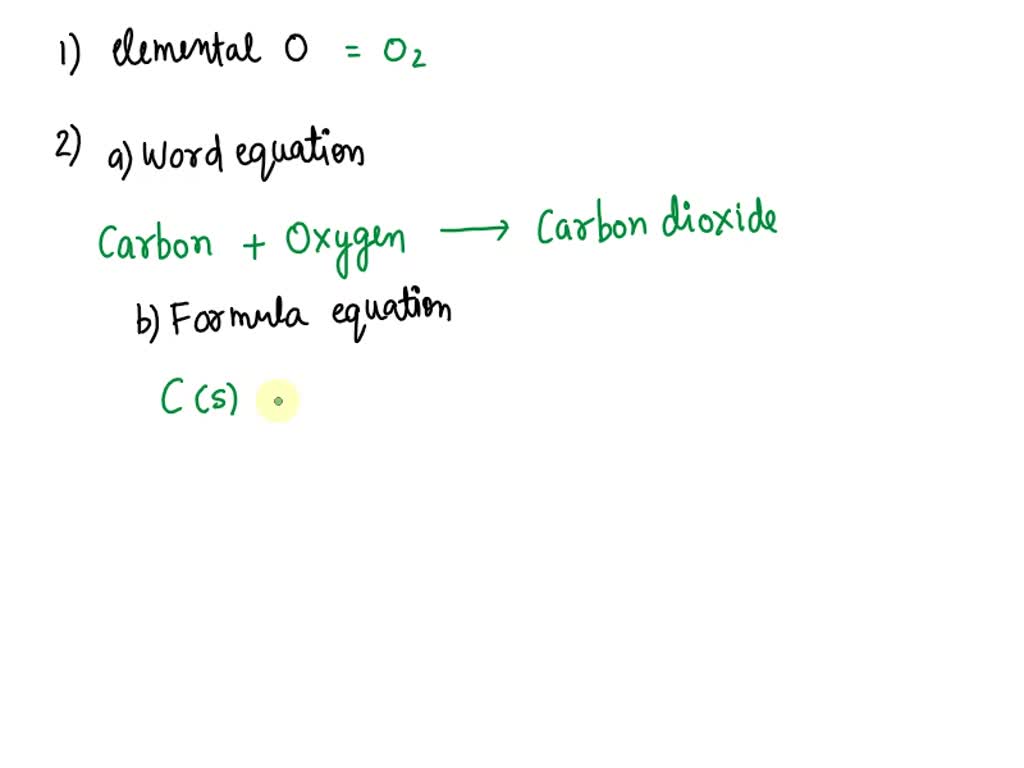 1) elemental O = O₂
2) a) Word equation
Carbon + Oxygen ⟶ Carbon dioxide
b) Formula equation
C (s)